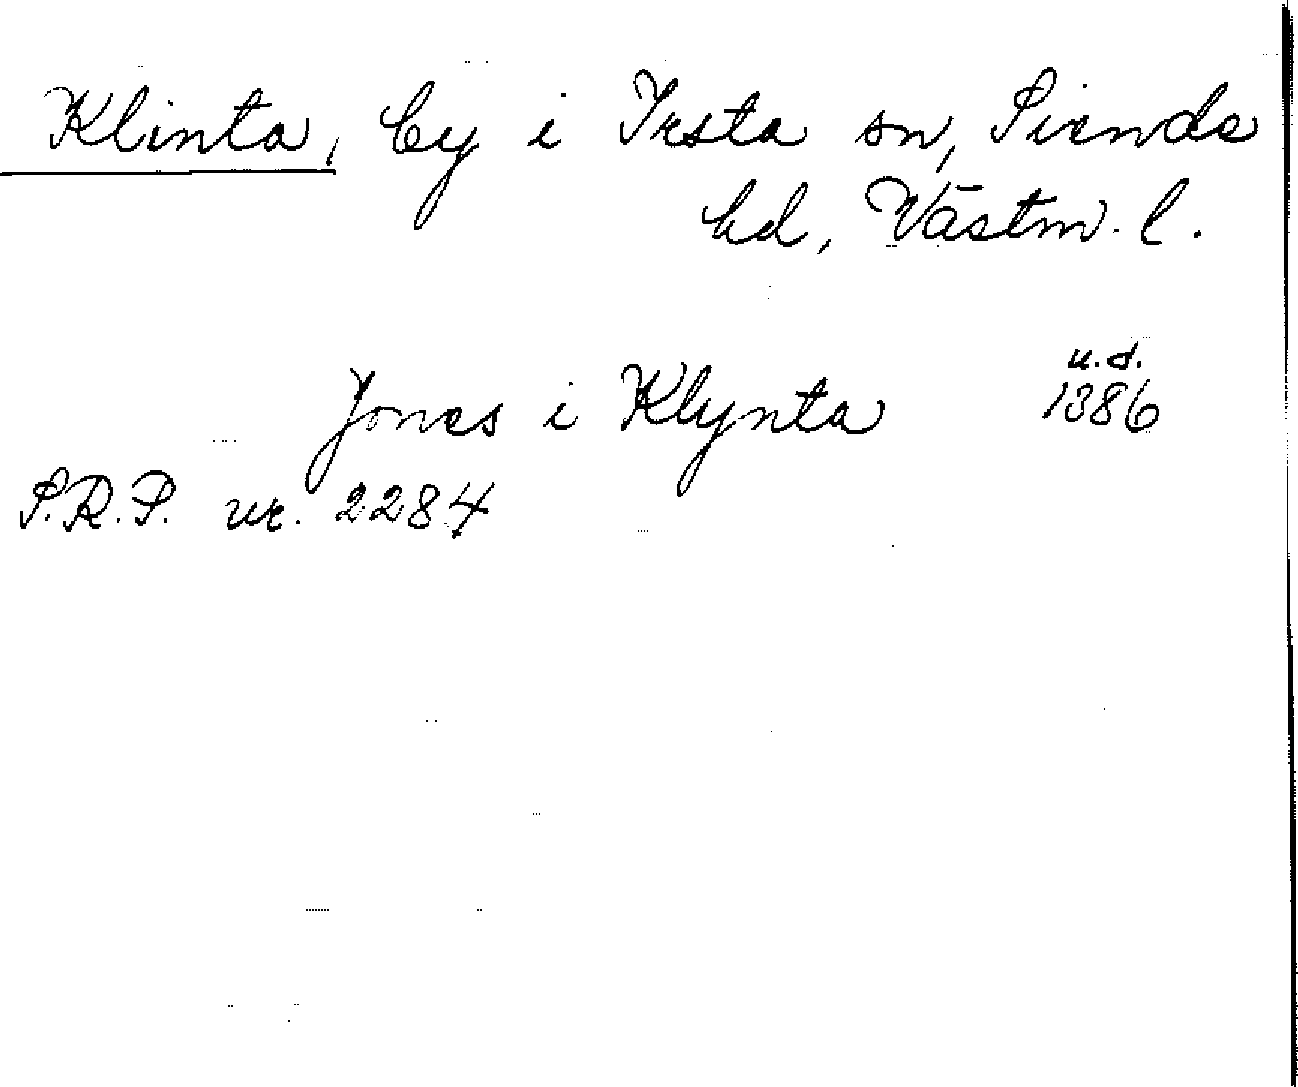 Klinta, by i Irsta sn, Siends
hd, Västm. l.
u.d.
Jones i Klynta 1386
S.R.P. nr. 2284